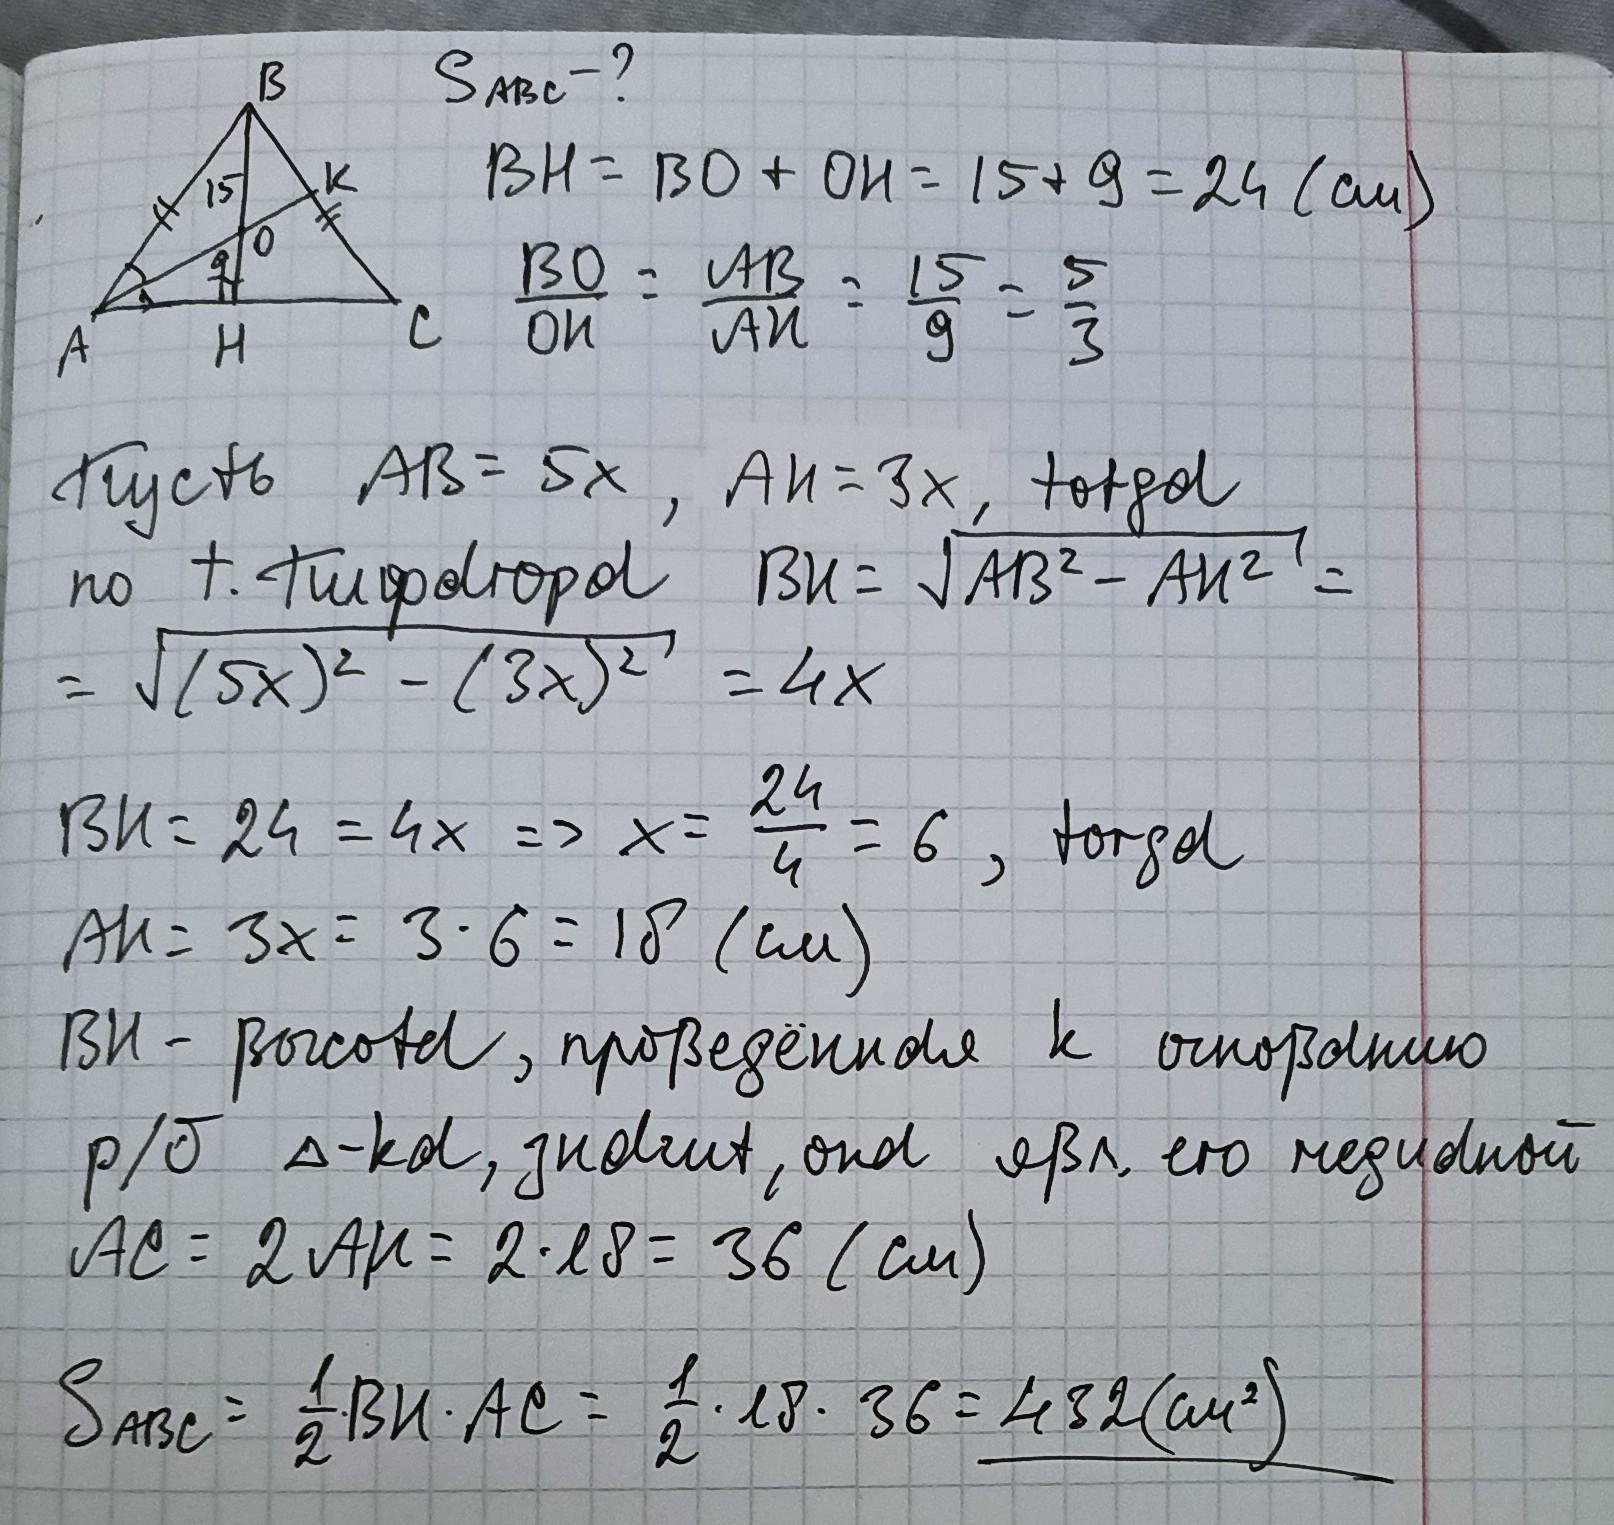 B
S_ABC - ?
15
K
BH = BO + OH = 15 + 9 = 24 (см)
O
9
BO/OH = AB/AH = 15/9 = 5/3
A H C
Пусть AB = 5x, AH = 3x, тогда
по т. Пифагора BH = √(AB² - AH²) =
= √((5x)² - (3x)²) = 4x
BH = 24 = 4x => x = 24/4 = 6, тогда
AH = 3x = 3 · 6 = 18 (см)
BH - высота, проведённая к основанию
р/б Δ-ка, значит, она явл. его медианой
AC = 2AH = 2 · 18 = 36 (см)
S_ABC = 1/2 · BH · AC = 1/2 · 18 · 36 = 432 (см²)